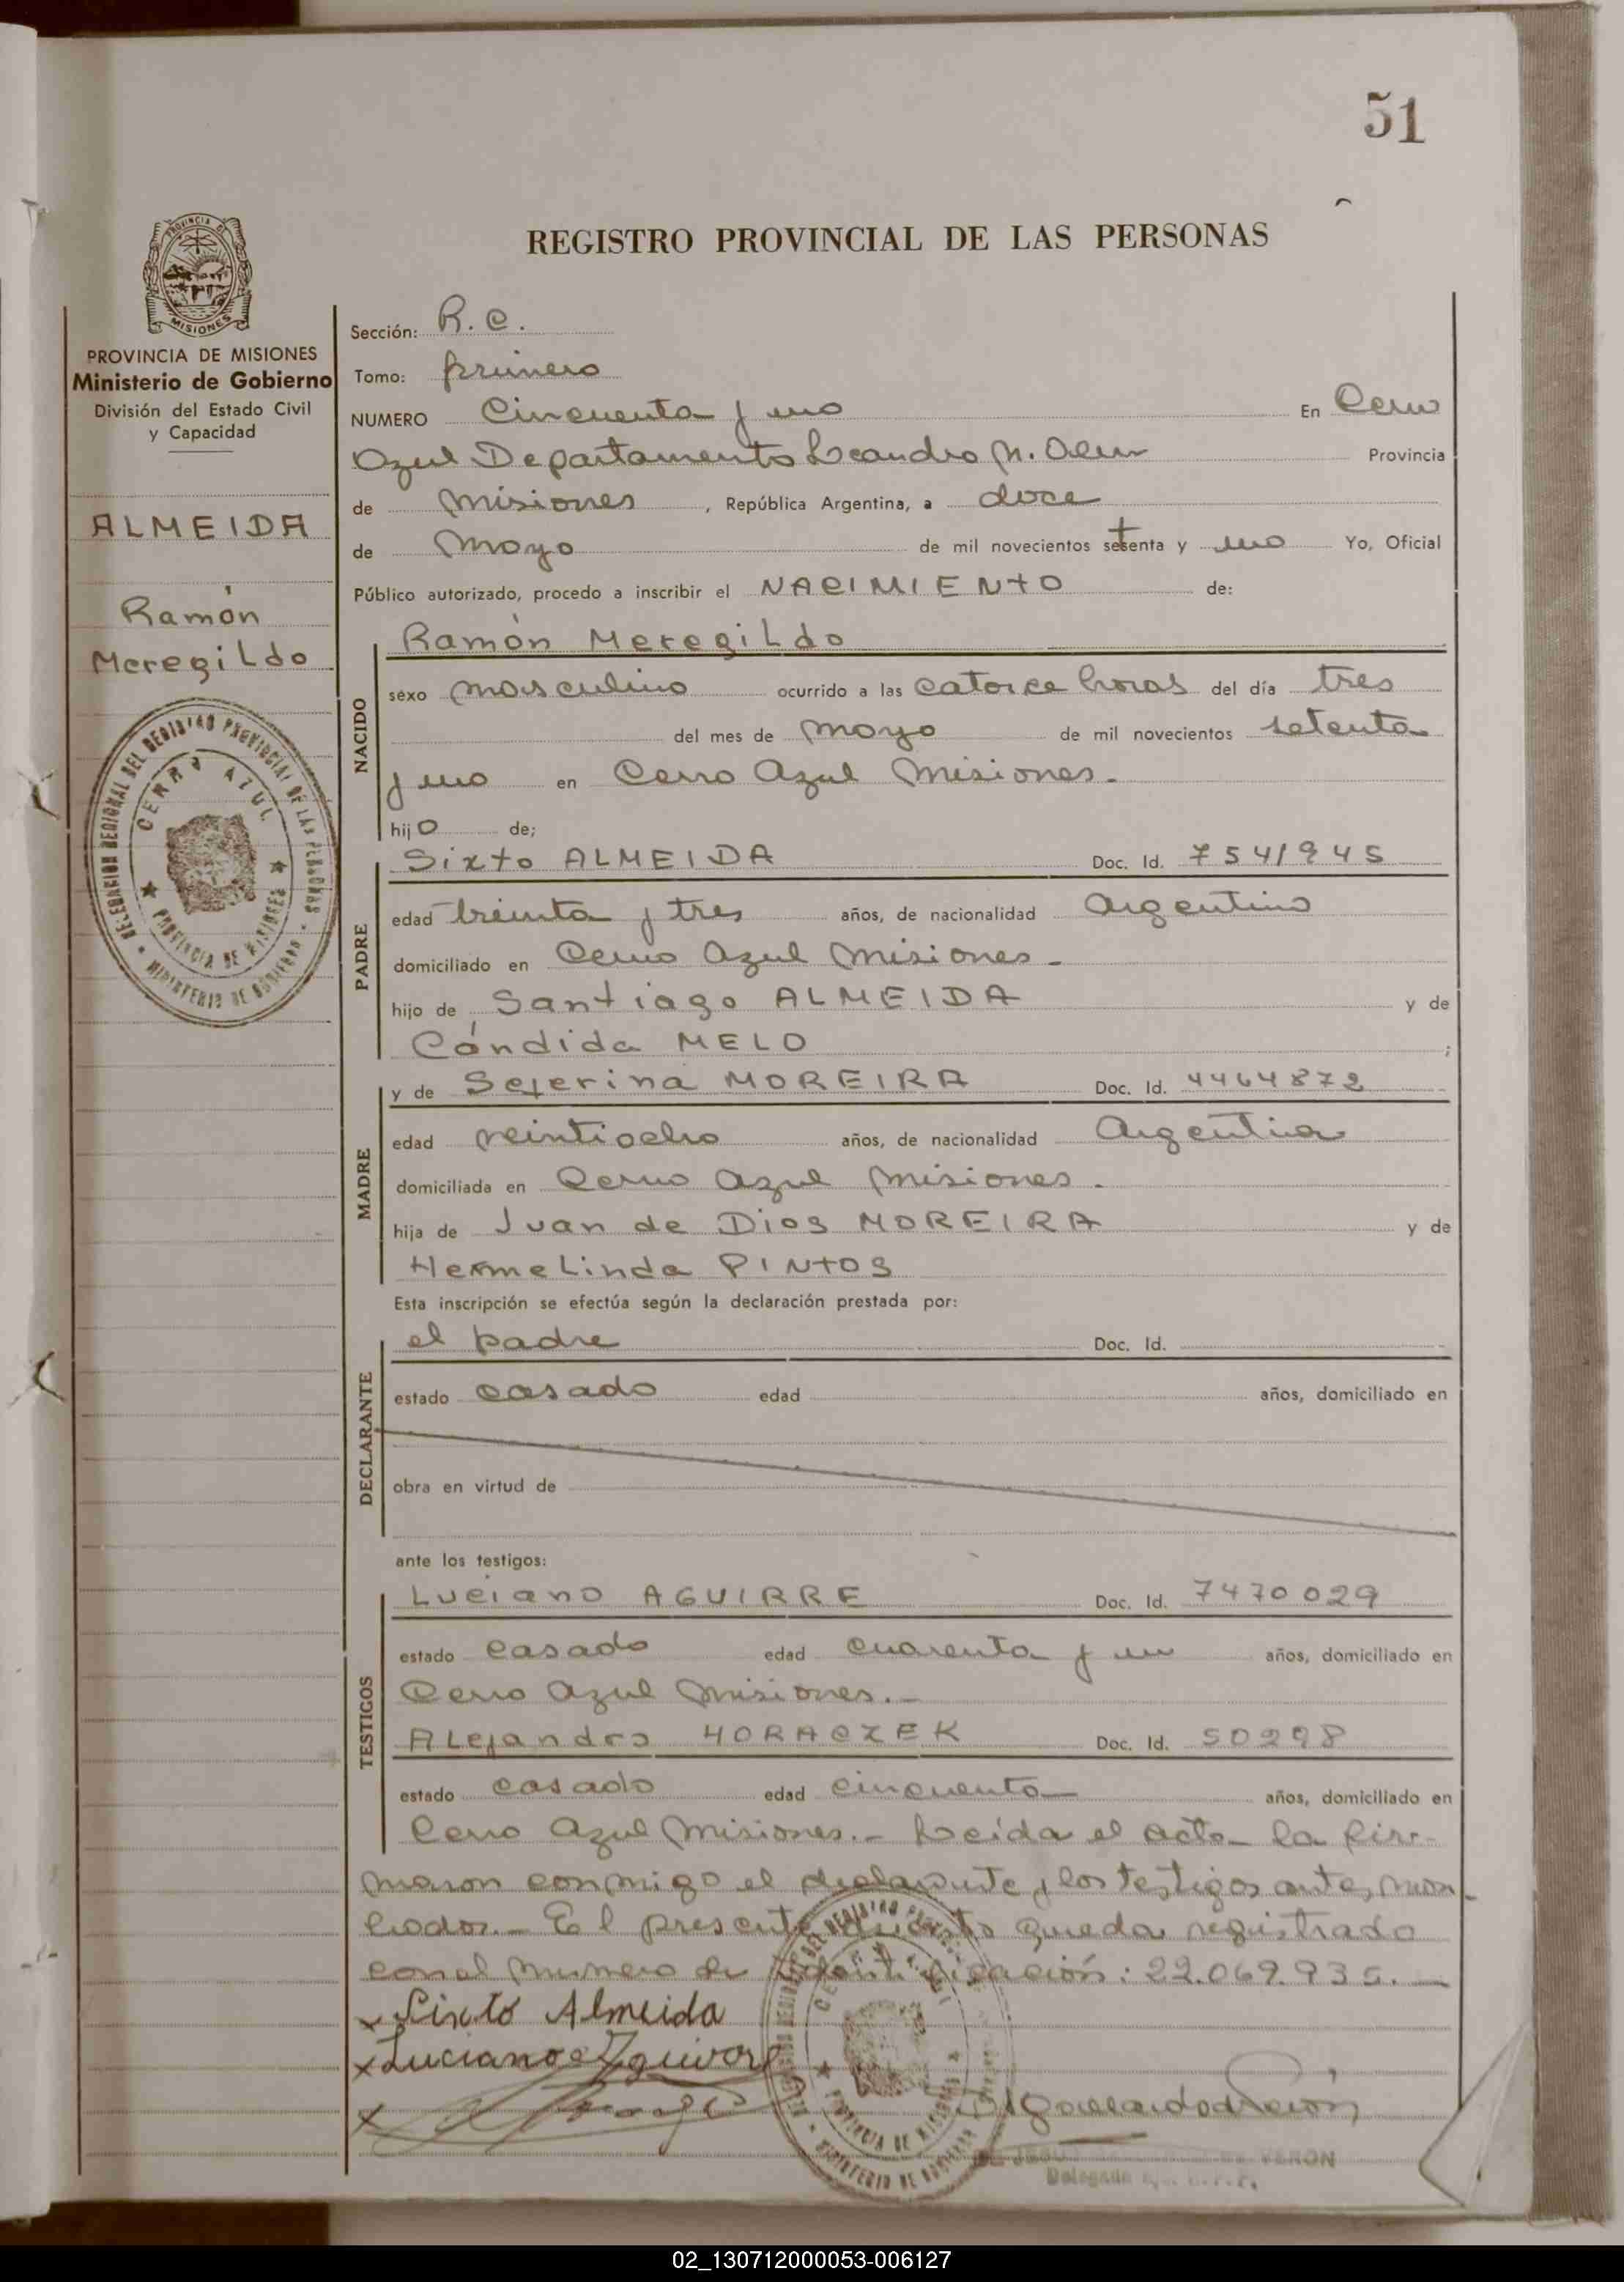 51
REGISTRO PROVINCIAL DE LAS PERSONAS
PROVINCIA DE MISIONES
Ministerio de Gobierno
División del Estado Civil
y Capacidad
ALMEIDA
Ramón
Meregildo
DELEGACION REGIONAL DEL REGISTRO PROVINCIAL DE LAS PERSONAS
CERRO AZUL
PROVINCIA DE MISIONES
MINISTERIO DE GOBIERNO
Sección: R.C.
Tomo: primero
NUMERO Cincuenta y uno En Cerro
Azul Departamento Leandro N. Alem Provincia
de Misiones, República Argentina, a doce
de Mayo de mil novecientos setenta y uno Yo, Oficial
Público autorizado, procedo a inscribir el NACIMIENTO de:
NACIDO
Ramón Meregildo
sexo masculino ocurrido a las catorce horas del día tres
del mes de Mayo de mil novecientos setenta
y uno en Cerro Azul Misiones.-
hijo de;
PADRE
Sixto ALMEIDA Doc. Id. 7541945
edad treinta y tres años, de nacionalidad Argentino
domiciliado en Cerro Azul Misiones.-
hijo de Santiago ALMEIDA y de
Cándida MELO ;
MADRE
y de Seferina MOREIRA Doc. Id. 4464872
edad veintiocho años, de nacionalidad Argentina
domiciliada en Cerro Azul Misiones.
hija de Juan de Dios MOREIRA y de
Hermelinda PINTOS
Esta inscripción se efectúa según la declaración prestada por:
DECLARANTE
el padre Doc. Id.
estado casado edad años, domiciliado en
obra en virtud de
ante los testigos:
TESTIGOS
Luciano AGUIRRE Doc. Id. 7470029
estado casado edad cuarenta y un años, domiciliado en
Cerro Azul Misiones.-
Alejandro HORACZEK Doc. Id. 50298
estado casado edad cincuenta años, domiciliado en
Cerro Azul Misiones.- Leida el acta la fir-
maron conmigo el declarante y los testigos antes, men-
ciados.- El presente queda registrado
con el numero de Identificación: 22.069.935.-
x Sixto Almeida
x Luciano
x
VERON
Delegada
02_130712000053-006127